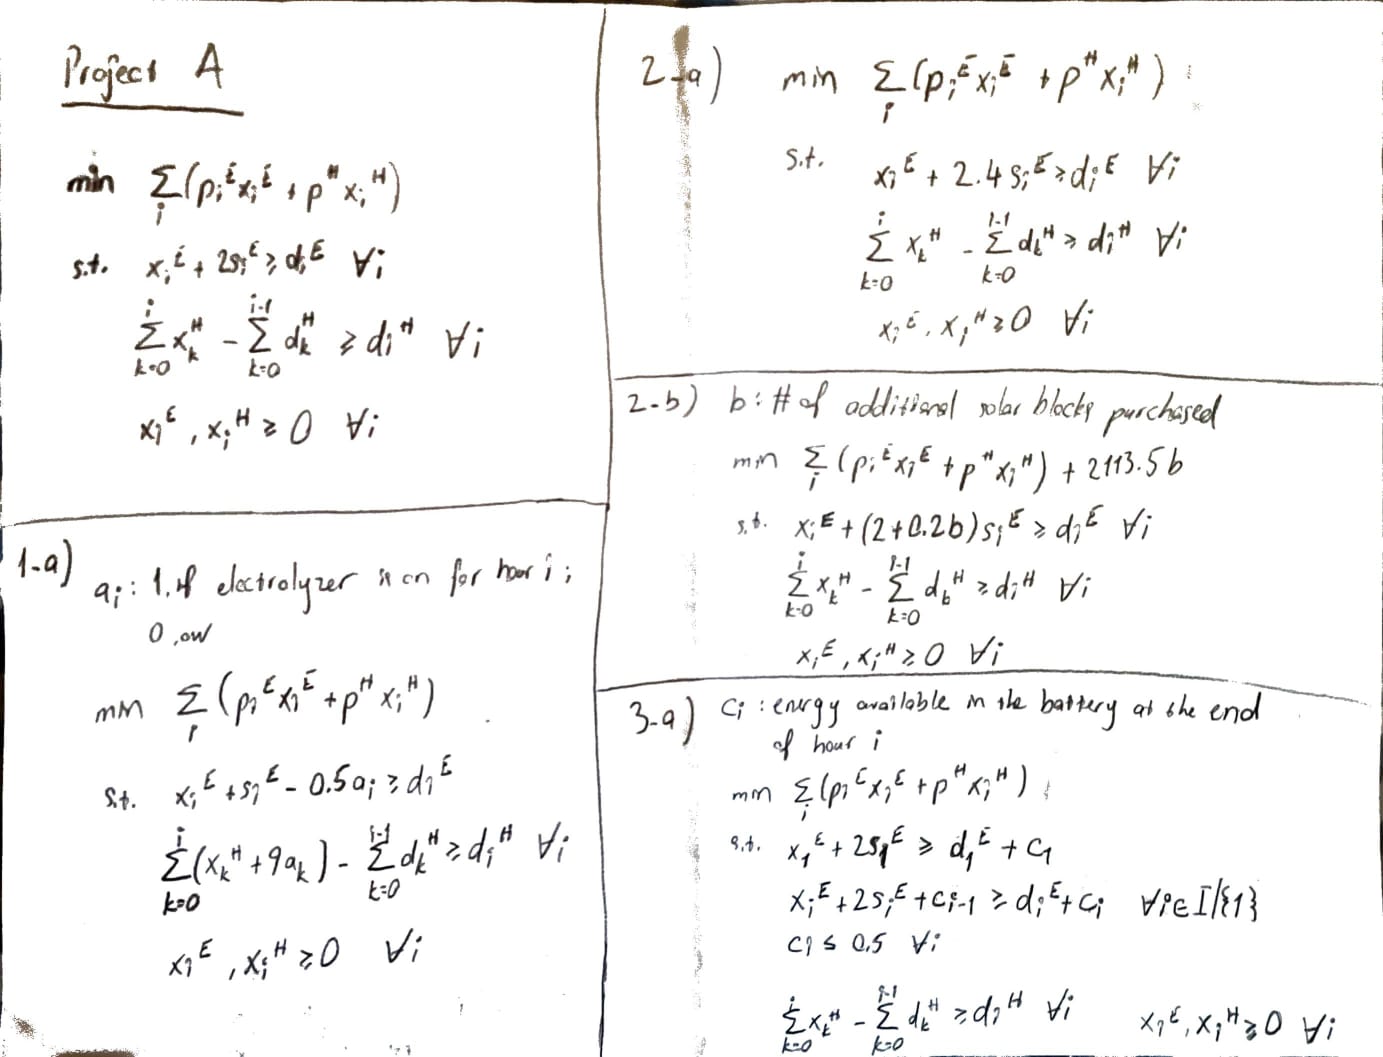 Project A
min Σ_i (p_i^E x_i^E + p^H x_i^H)
s.t. x_i^E + 2s_i^E ≥ d_i^E ∀i
Σ_{k=0}^{i} x_k^H - Σ_{k=0}^{i-1} d_k^H ≥ d_i^H ∀i
x_i^E , x_i^H ≥ 0 ∀i
1-a) a_i : 1, if electrolyzer is on for hour i ;
0 , ow
min Σ_i (p_i^E x_i^E + p^H x_i^H)
s.t. x_i^E + s_i^E - 0.5a_i ≥ d_i^E
Σ_{k=0}^{i} (x_k^H + 9a_k) - Σ_{k=0}^{i-1} d_k^H ≥ d_i^H ∀i
x_i^E , x_i^H ≥ 0 ∀i
2-a) min Σ_i (p_i^E x_i^E + p^H x_i^H)
s.t. x_i^E + 2.4 s_i^E ≥ d_i^E ∀i
Σ_{k=0}^{i} x_k^H - Σ_{k=0}^{i-1} d_k^H ≥ d_i^H ∀i
x_i^E , x_i^H ≥ 0 ∀i
2-b) b : # of additional solar blocks purchased
min Σ_i (p_i^E x_i^E + p^H x_i^H) + 2113.5b
s.t. x_i^E + (2+0.2b) s_i^E ≥ d_i^E ∀i
Σ_{k=0}^{i} x_k^H - Σ_{k=0}^{i-1} d_k^H ≥ d_i^H ∀i
x_i^E , x_i^H ≥ 0 ∀i
3-a) c_i : energy available in the battery at the end
of hour i
min Σ_i (p_i^E x_i^E + p^H x_i^H)
s.t. x_1^E + 2s_1^E ≥ d_1^E + c_1
x_i^E + 2s_i^E + c_{i-1} ≥ d_i^E + c_i ∀i∈I/{1}
c_i ≤ 0.5 ∀i
Σ_{k=0}^{i} x_k^H - Σ_{k=0}^{i-1} d_k^H ≥ d_i^H ∀i x_i^E , x_i^H ≥ 0 ∀i